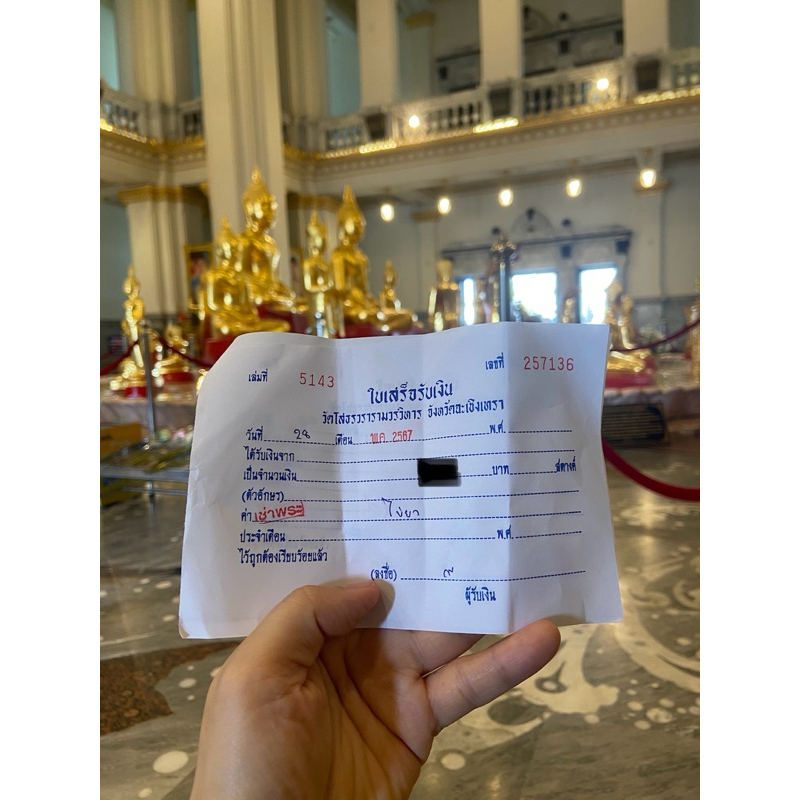 เล่มที่ 5143 เลขที่ 257136
ใบเสร็จรับเงิน
วัดโสธรวรารามวรวิหาร จังหวัดฉะเชิงเทรา
วันที่ ๒๘ เดือน พ.ค. 2567 พ.ศ.
ได้รับเงินจาก
เป็นจำนวนเงิน บาท สตางค์
(ตัวอักษร)
ค่า เช่าพระ
ประจำเดือน พ.ศ.
ไว้ถูกต้องเรียบร้อยแล้ว
(ลงชื่อ)
ผู้รับเงิน